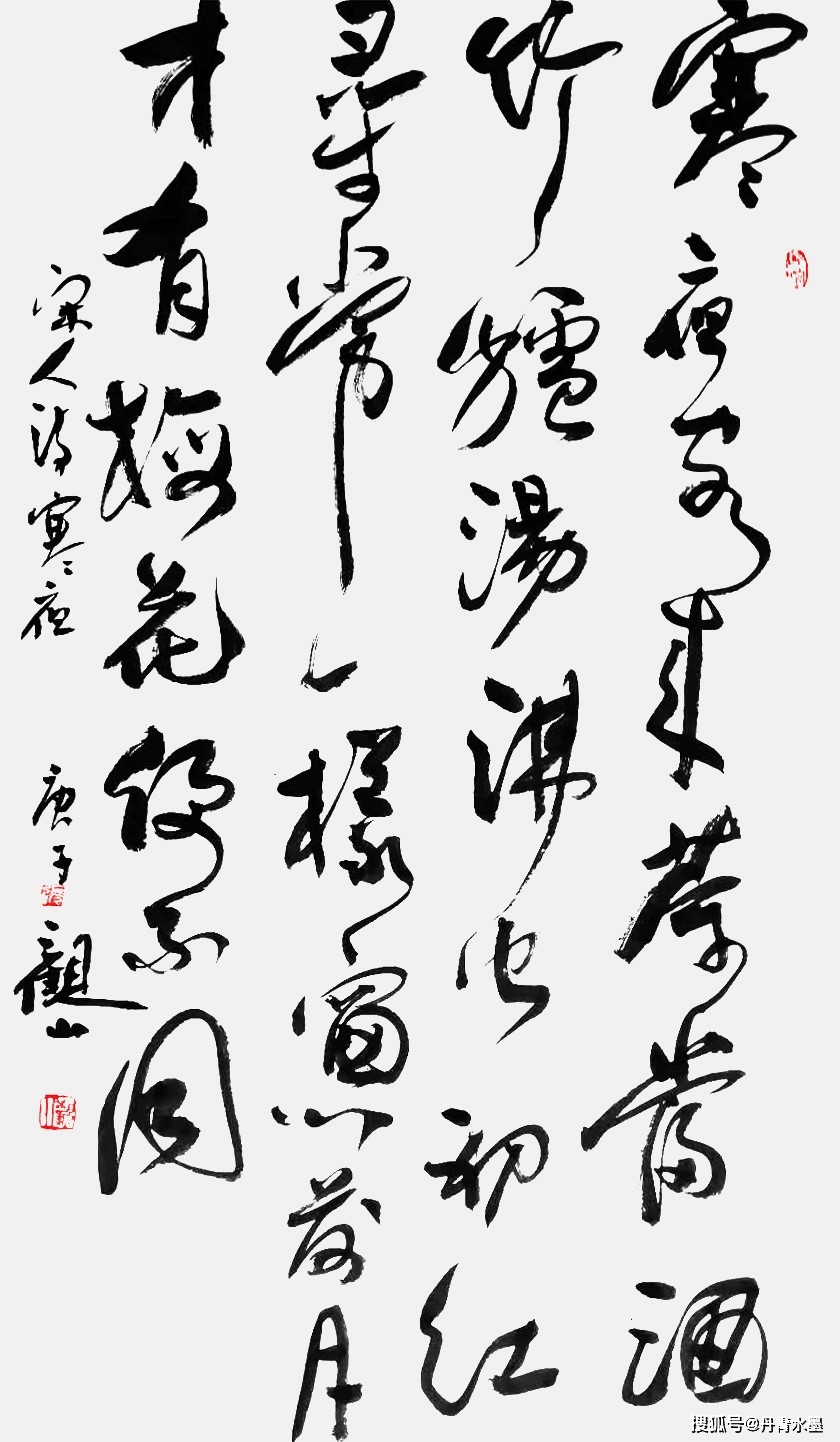 寒夜客来茶當酒
竹爐湯沸火初紅
尋常一樣窗前月
才有梅花便不同
宋人詩寒夜 庚子 觀山
搜狐号@丹青水墨